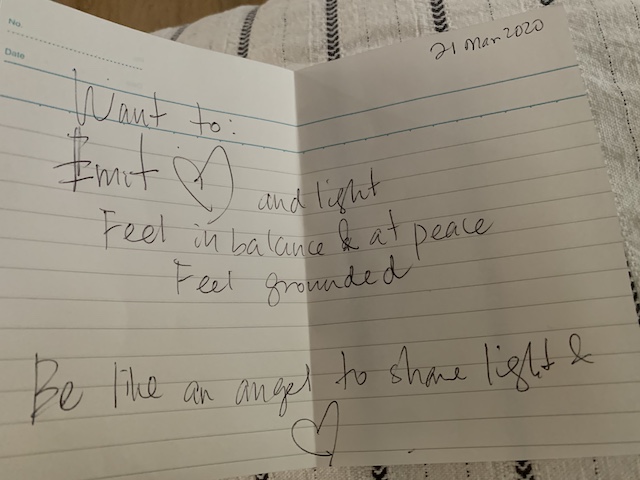 No.
Date
21 Mar 2020
Want to:
Emit ♡ and light
Feel in balance & at peace
Feel grounded
Be like an angel to share light &
♡